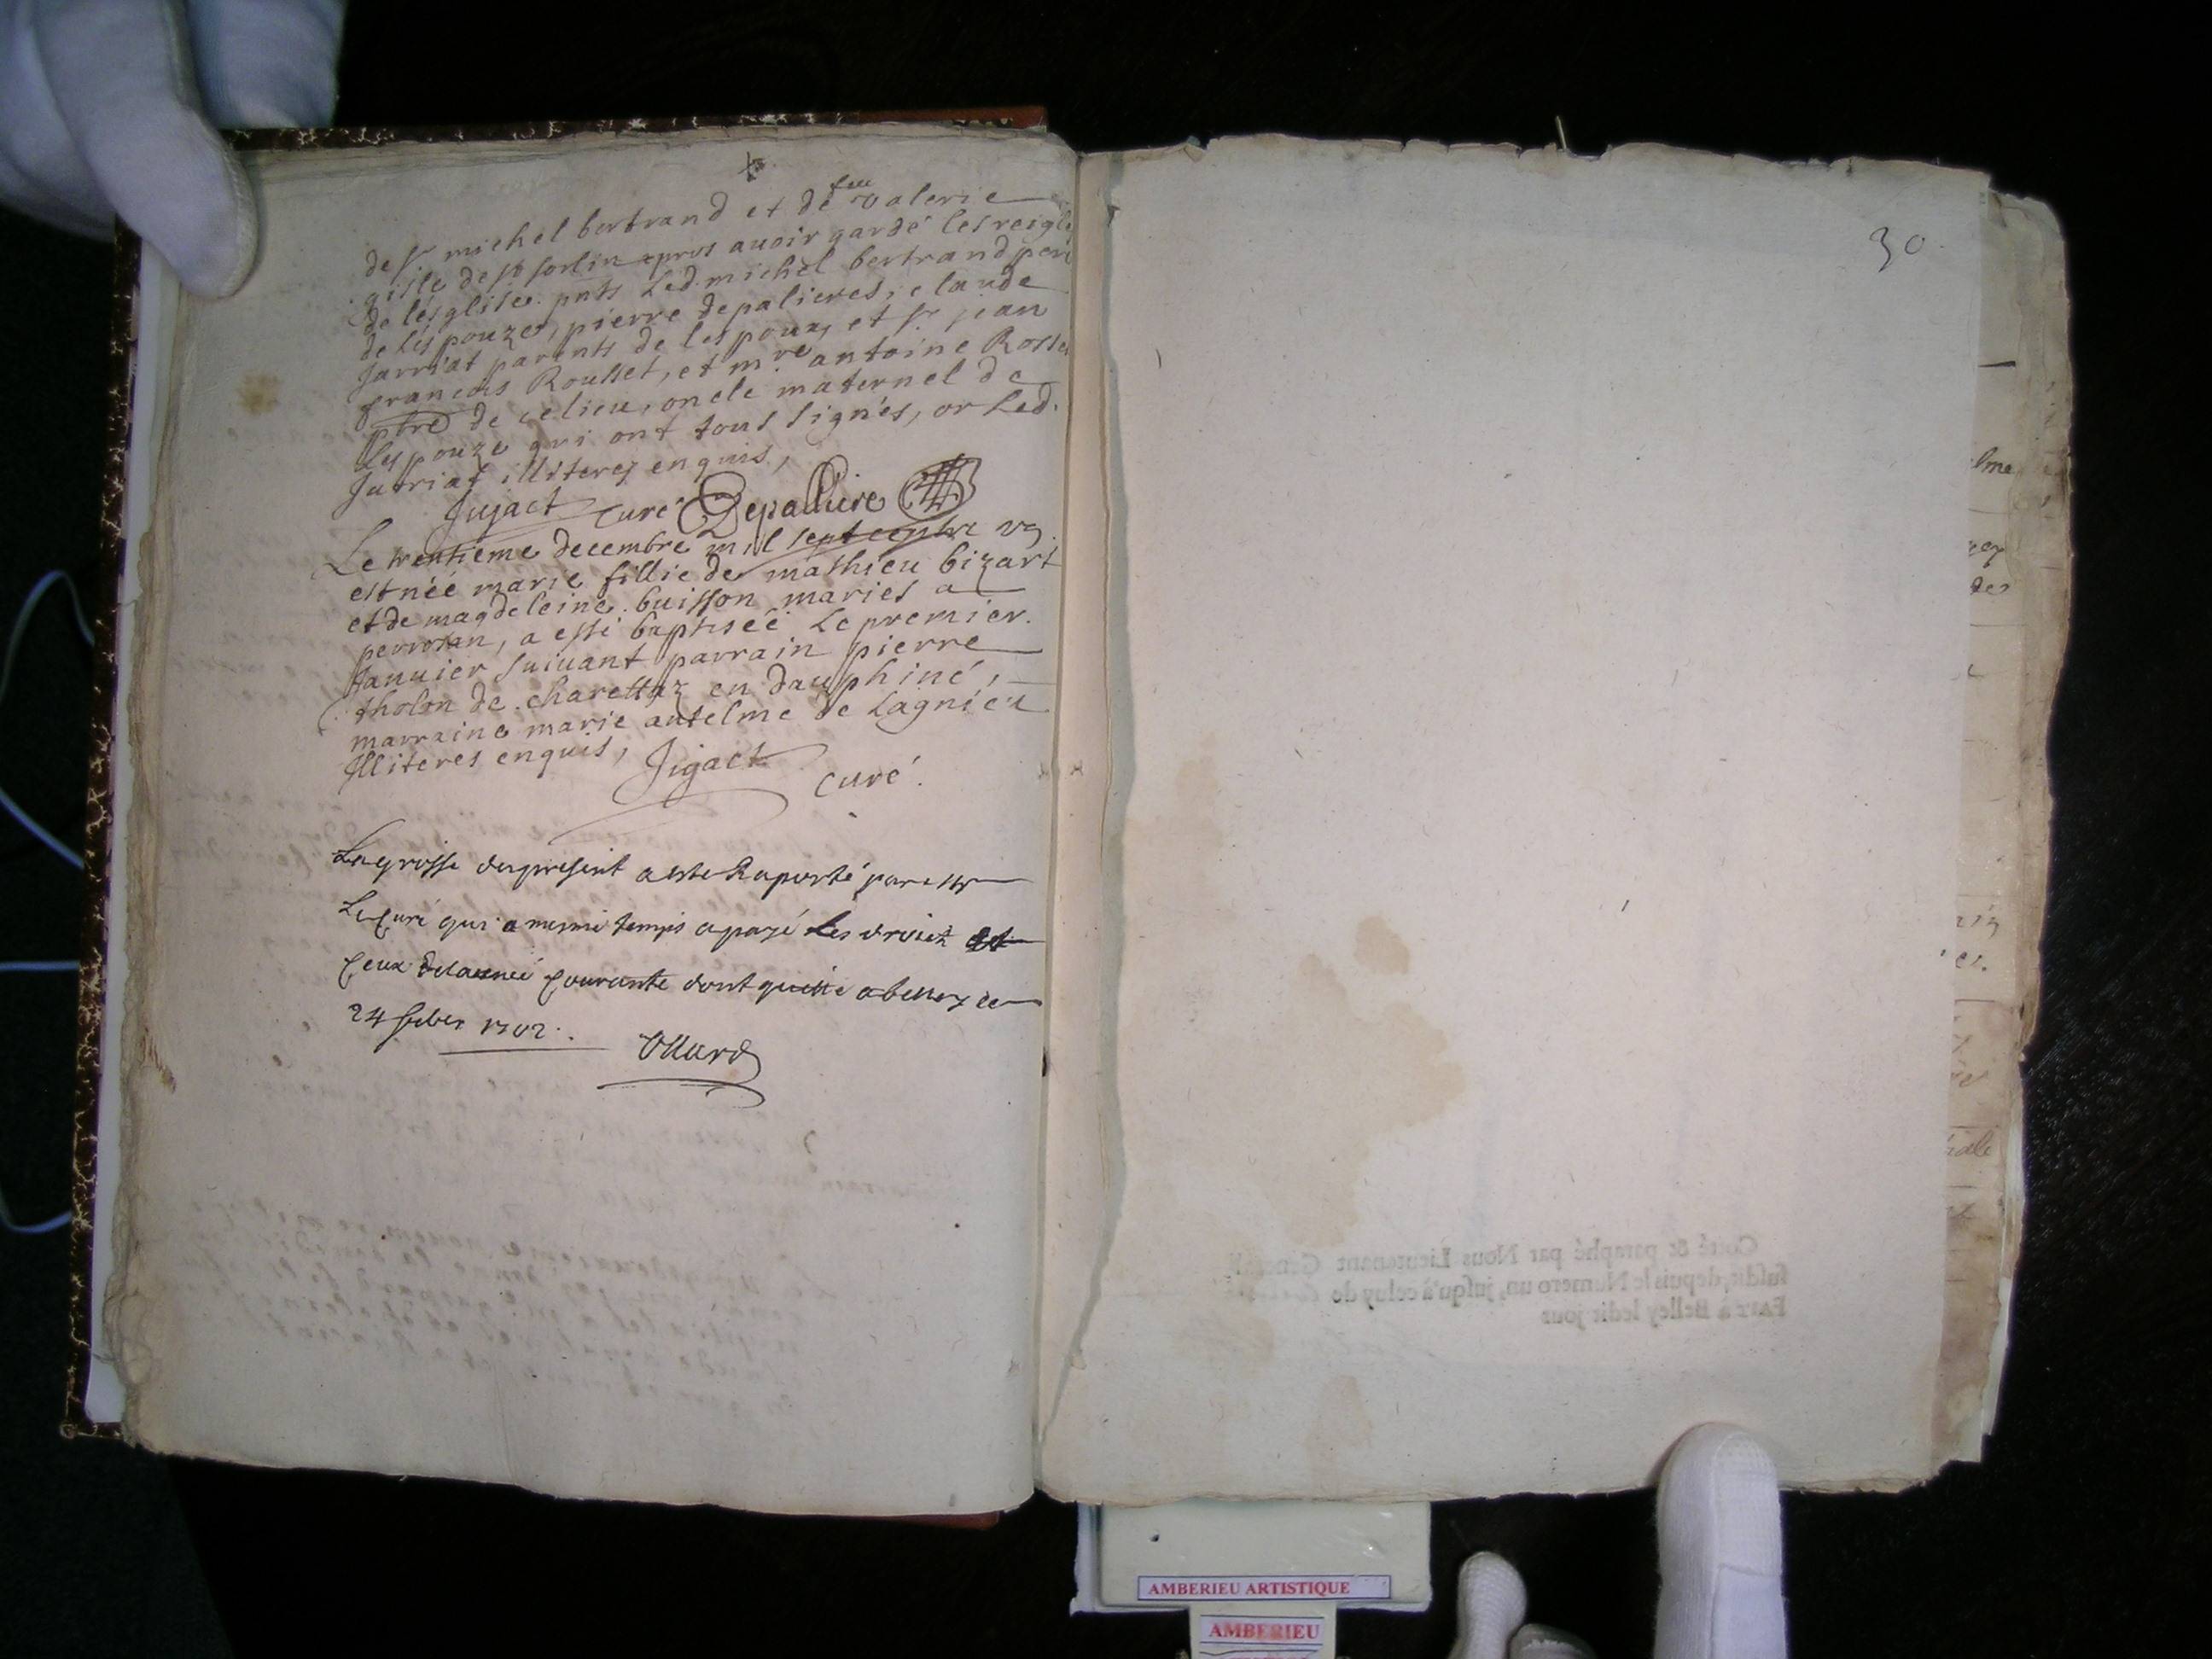 de sr michel bertrand et de feu valerie
gisle de st sorlin apres avoir gardé les reigle
de lésglise pnts Led. michel bertrand pere
de Léspouze, pierre depalieres, claude
Jarriat parents de lespoux, et sr jean
francois Rousset, et mre antoine Rosset
ptre de ce lieu, oncle maternel de
Lespouze qui ont tous signés, or Led.
Jarriat illiterez enquis,
Jujact curé Depalliere
Le trentieme decembre mil
est née marie fillie de mathieu bizart
et de magdeleine buisson mariés a
perrozan, a esté baptiséé Le premier
Januier suiuant parrain pierre
tholon de charettaz en dauphiné,
marraine marie antelme de Lagnieu
Illiteres enquis, Jujact
curé.
La grosse du present a esté Raporté par Mr
Le Curé qui a mesme temps a payé Les droits et
Ceux de l'année Courante dont quitte a belley ce
24 febver 1702.
Ollard
30
Cotté & paraphé par Nous Lieutenant General
susdit, depuis le Numero un, jusqu'à celuy de
FAIT à Belley ledit jour
elme
des
AMBERIEU ARTISTIQUE
AMBERIEU